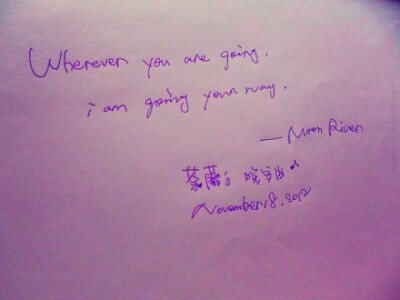 Wherever you are going.
i am going your way.
— Moon River
荼蘼's 晚安曲
November 18. 2012